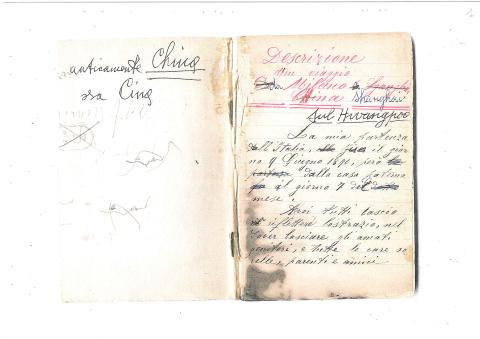 anticamente China
ora Cina
Descrizione
d'un viaggio
da Milano a
China Shanghai
sul Hwangpoo
La mia partenza
dell'Italia, il gior
no 9 Giugno 1890, però
dalla casa paterna
il giorno 7 del
mese.
A voi tutti lascio
riflettere lo strazio, nel
dover lasciare gli amati
genitori, e tutte le care so
relle, parenti e amici